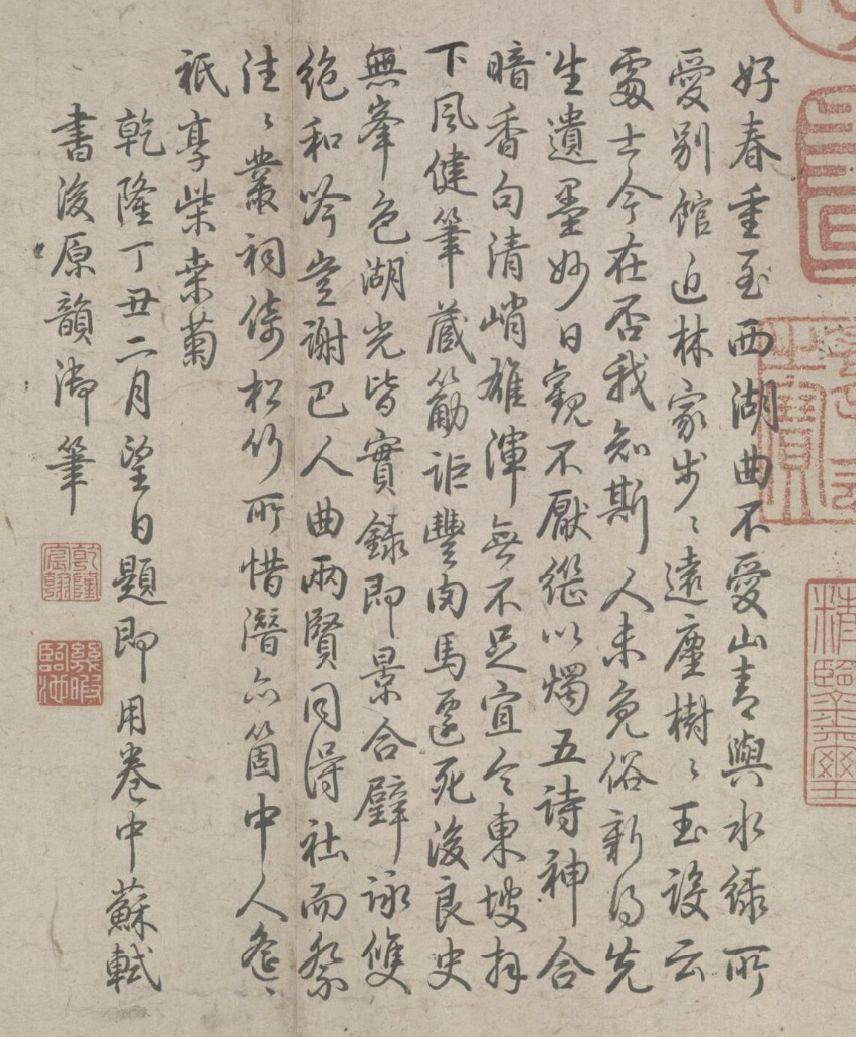 好春重至西湖曲不愛山青與水綠所
愛別館近林家步〻遠塵樹〻玉設云
處士今在否我知斯人未免俗新得先
生遺墨妙日觀不厭繼以燭五詩神合
暗香句清峭雄渾無不足宜令東坡拜
下風健筆藏筋詎豐肉馬遷死後良史
無峯色湖光皆實錄即景合璧詠雙
絶和吟豈謝巴人曲兩賢同得社而祭
往〻叢祠倚松竹所惜潛亦箇中人
祇享柴桒菊
乾隆丁丑二月望日題即用卷中蘇軾
書後原韻御筆
乾隆宸翰
幾暇臨池
精鑒璽